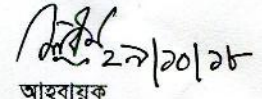 ২৯|১০|১৮
আহবায়ক